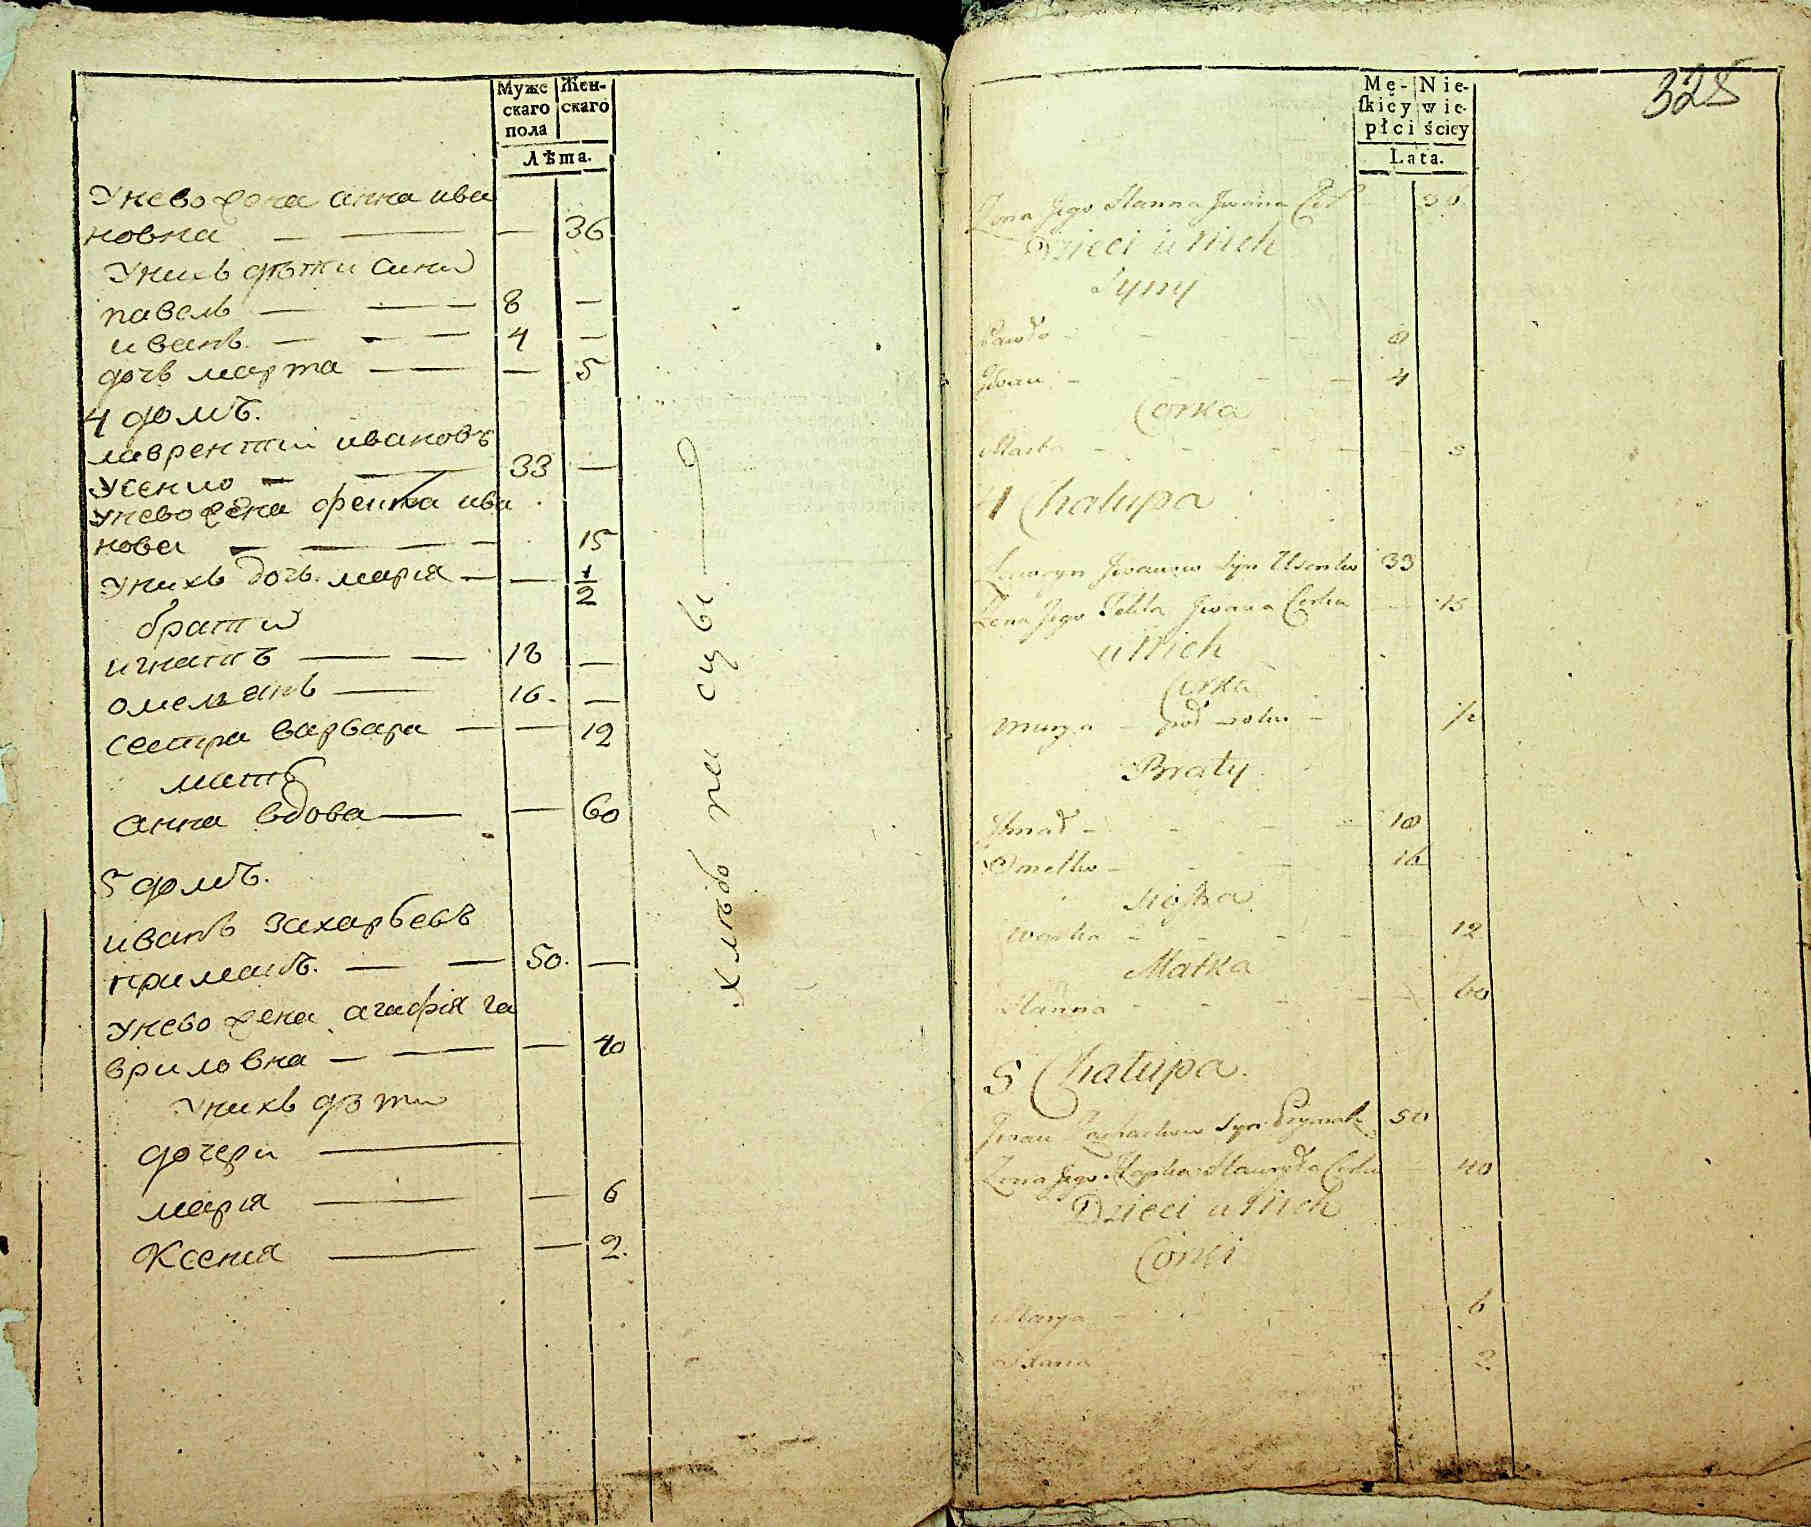 Муже
скаго
пола
Жен-
скаго
Лѣта.
Унево жена анна ива
новна — — — 36
Унихъ дѣти сины
павелъ — — 8 —
иванъ — — — 4 —
дочь марта — — 5
4 домъ.
лаврентий ивановъ
усенко — — 33 —
унево жена феика ива
нова — — — 15
Унихъ дочь мария — — 1/2
брати
игнатъ — — 18 —
омелянъ — 16. —
сестра варвара — — 12
мать
анна вдова — — 60
5 домъ.
иванъ захарьевъ
примакъ. — — 50. —
унево жена агафия га
вриловна — — — 40
Унихъ дѣти
дочери —
мария — — 6
Ксения — — 2.
328
Mę-
ſkiéy
płci
Nie-
wie-
ściey
Lata.
Zona Jego Hanna Jwana Cor — 36
Dzieci u Nich
Syny
Pawło — — — 8
Jwan — — — — 4
Corka
Marta — — — — — 5
4 Chalupa
Jwanow Syn Usenko 33
Zona Jego Jwana Corka — 15
u Nich
Corka
Marya — pod — 1/2
Braty
Hnat — — — — 18
Omelko — — — — 16
Siostra
Warka — — — — — 12
Matka
Hanna — — — — — 60
5 Chalupa.
Jwan Syn Prymak 50
Zona Jego Hapka Corka — 40
Dzieci u Nich
Corki
Marya — — — — — 6
2